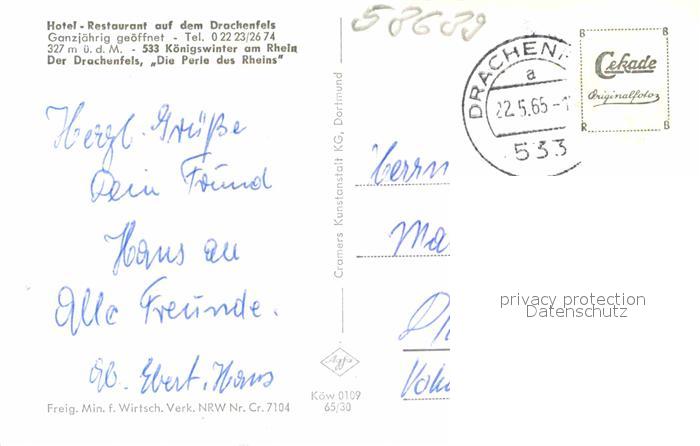 Hotel - Restaurant auf dem Drachenfels
Ganzjährig geöffnet - Tel. 0 22 23/26 74
327 m ü. d. M. - 533 Königswinter am Rhein
Der Drachenfels, „Die Perle des Rheins"
Herzl. Grüße
Dein Freund
Hans an
Alle Freunde.
Ebert, Hans
Freig. Min. f. Wirtsch. Verk. NRW Nr. Cr. 7104
Cramers Kunstanstalt KG, Dortmund
Köw 0109
65/30
58689
DRACHENF
a
22.5.65-1
533
B B
Cekade
Originalfoto
R B
Herrn
Ma
privacy protection
Datenschutz